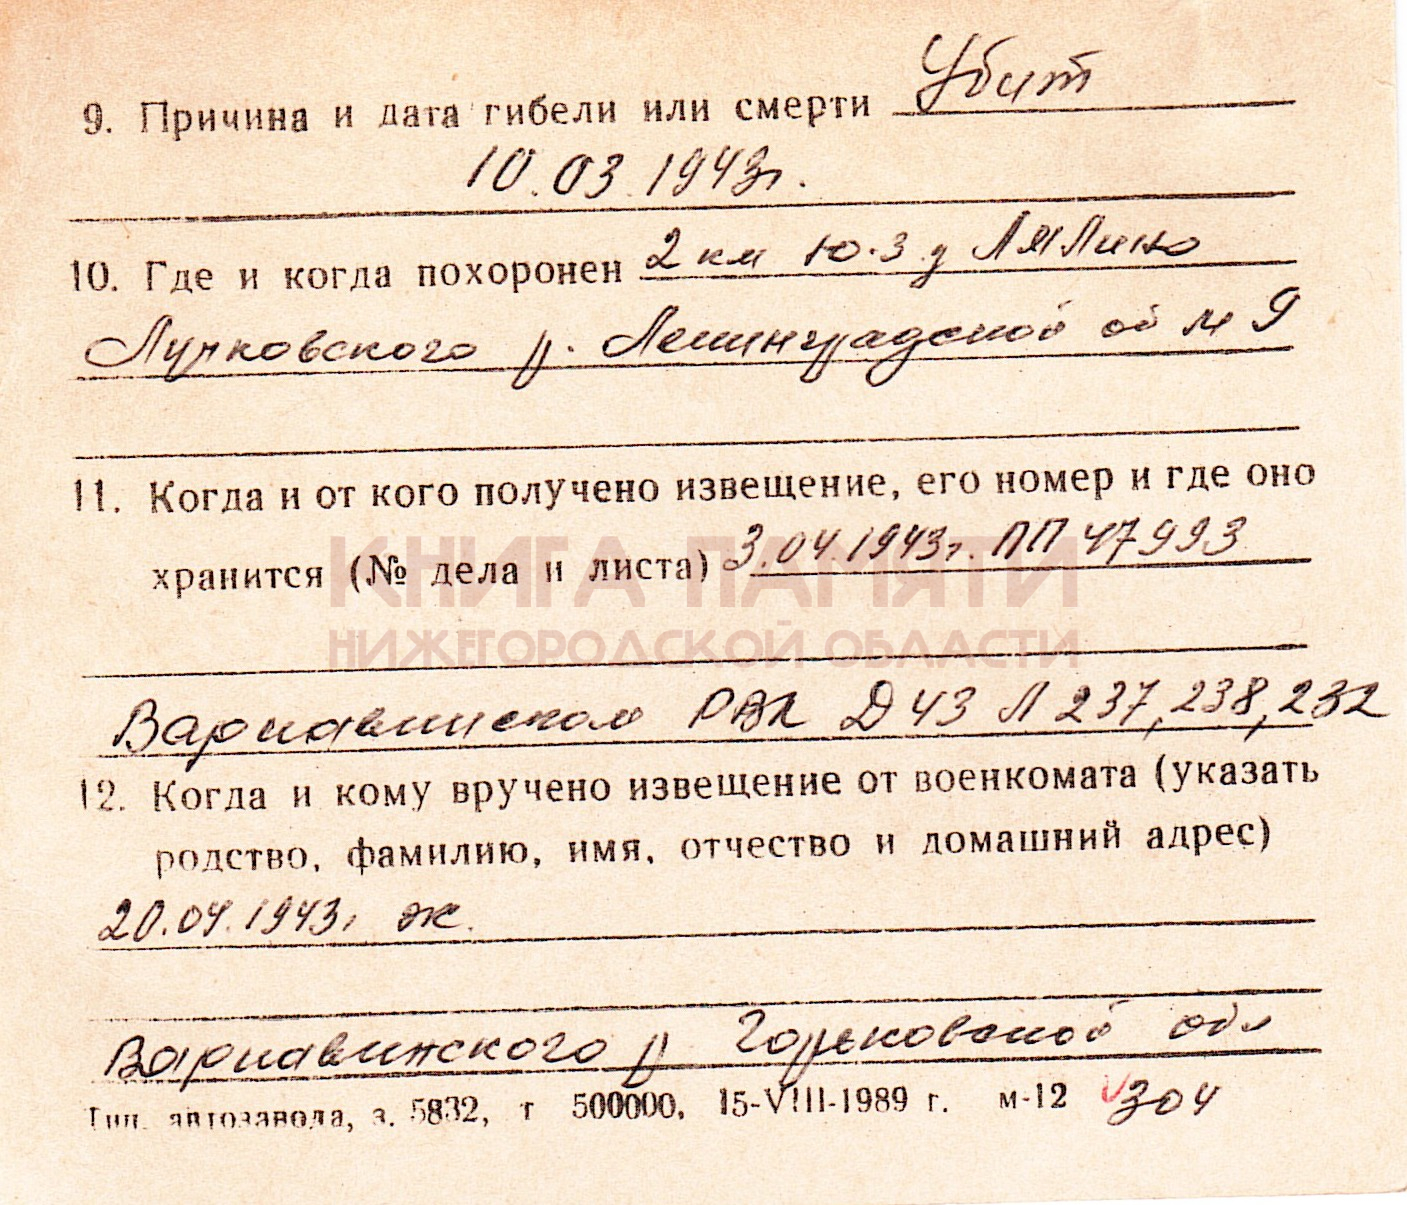 9. Причина и дата гибели или смерти Убит
10.03.1943г.
10. Где и когда похоронен 2 км Ю-З д Лялино
Лычковского р. Ленинградской об м 9
11. Когда и от кого получено извещение, его номер и где оно
хранится (№ дела и листа) 3.04.1943г. ПП 47993
КНИГА ПАМЯТИ
НИЖЕГОРОДСКОЙ ОБЛАСТИ
Варнавинском РВК Д 43 Л 237, 238, 232
12. Когда и кому вручено извещение от военкомата (указать
родство, фамилию, имя, отчество и домашний адрес)
20.04.1943г ж.
Варнавинского р Горьковской обл
Тип. автозавода, з. 5832, т 500000, 15-VIII-1989 г. м-12 304